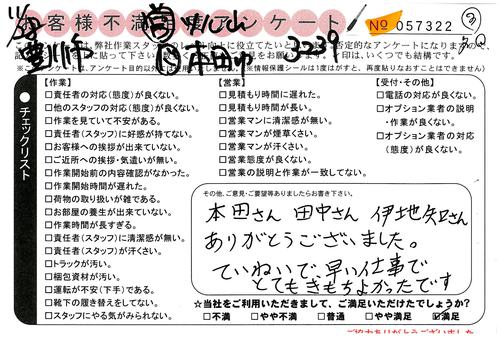 お客様不満足アンケート
No 057322
豊川市
本田
3229
【作業】
□責任者の対応(態度)が良くない。
□他のスタッフの対応(態度)が良くない。
□作業を見ていて不安がある。
□責任者(スタッフ)に好感が持てない。
□お客様への挨拶が出来ていない。
□ご近所への挨拶・気遣いが無い。
□作業開始前の内容確認がなかった。
□作業開始時間が遅れた。
□荷物の取り扱いが雑である。
□お部屋の養生が出来ていない。
□作業時間が長すぎる。
□責任者(スタッフ)に清潔感が無い。
□責任者(スタッフ)が汗くさい。
□トラックが汚い。
□梱包資材が汚い。
□運転が不安(下手)である。
□靴下の履き替えをしてない。
□スタッフにやる気がみられない。
【営業】
□見積もり時間に遅れた。
□見積もり時間が長い。
□営業マンに清潔感が無い。
□営業マンが煙草くさい。
□営業マンが汗くさい。
□営業態度が良くない。
□営業の説明と作業が一致してない。
【受付・その他】
□電話の対応が良くない。
□オプション業者の説明
・作業が良くない。
□オプション業者の対応
(態度)が良くない。
●チェックリスト
その他、ご意見・ご要望等ありましたらお書き下さい。
本田さん 田中さん 伊地知さん
ありがとうございました。
ていねいで、早い仕事で
とてもきもちよかったです
☆当社をご利用いただきまして、ご満足いただけたでしょうか?
□不満 □やや不満 □普通 □やや満足 ☑満足
ご協力ありがとうございました